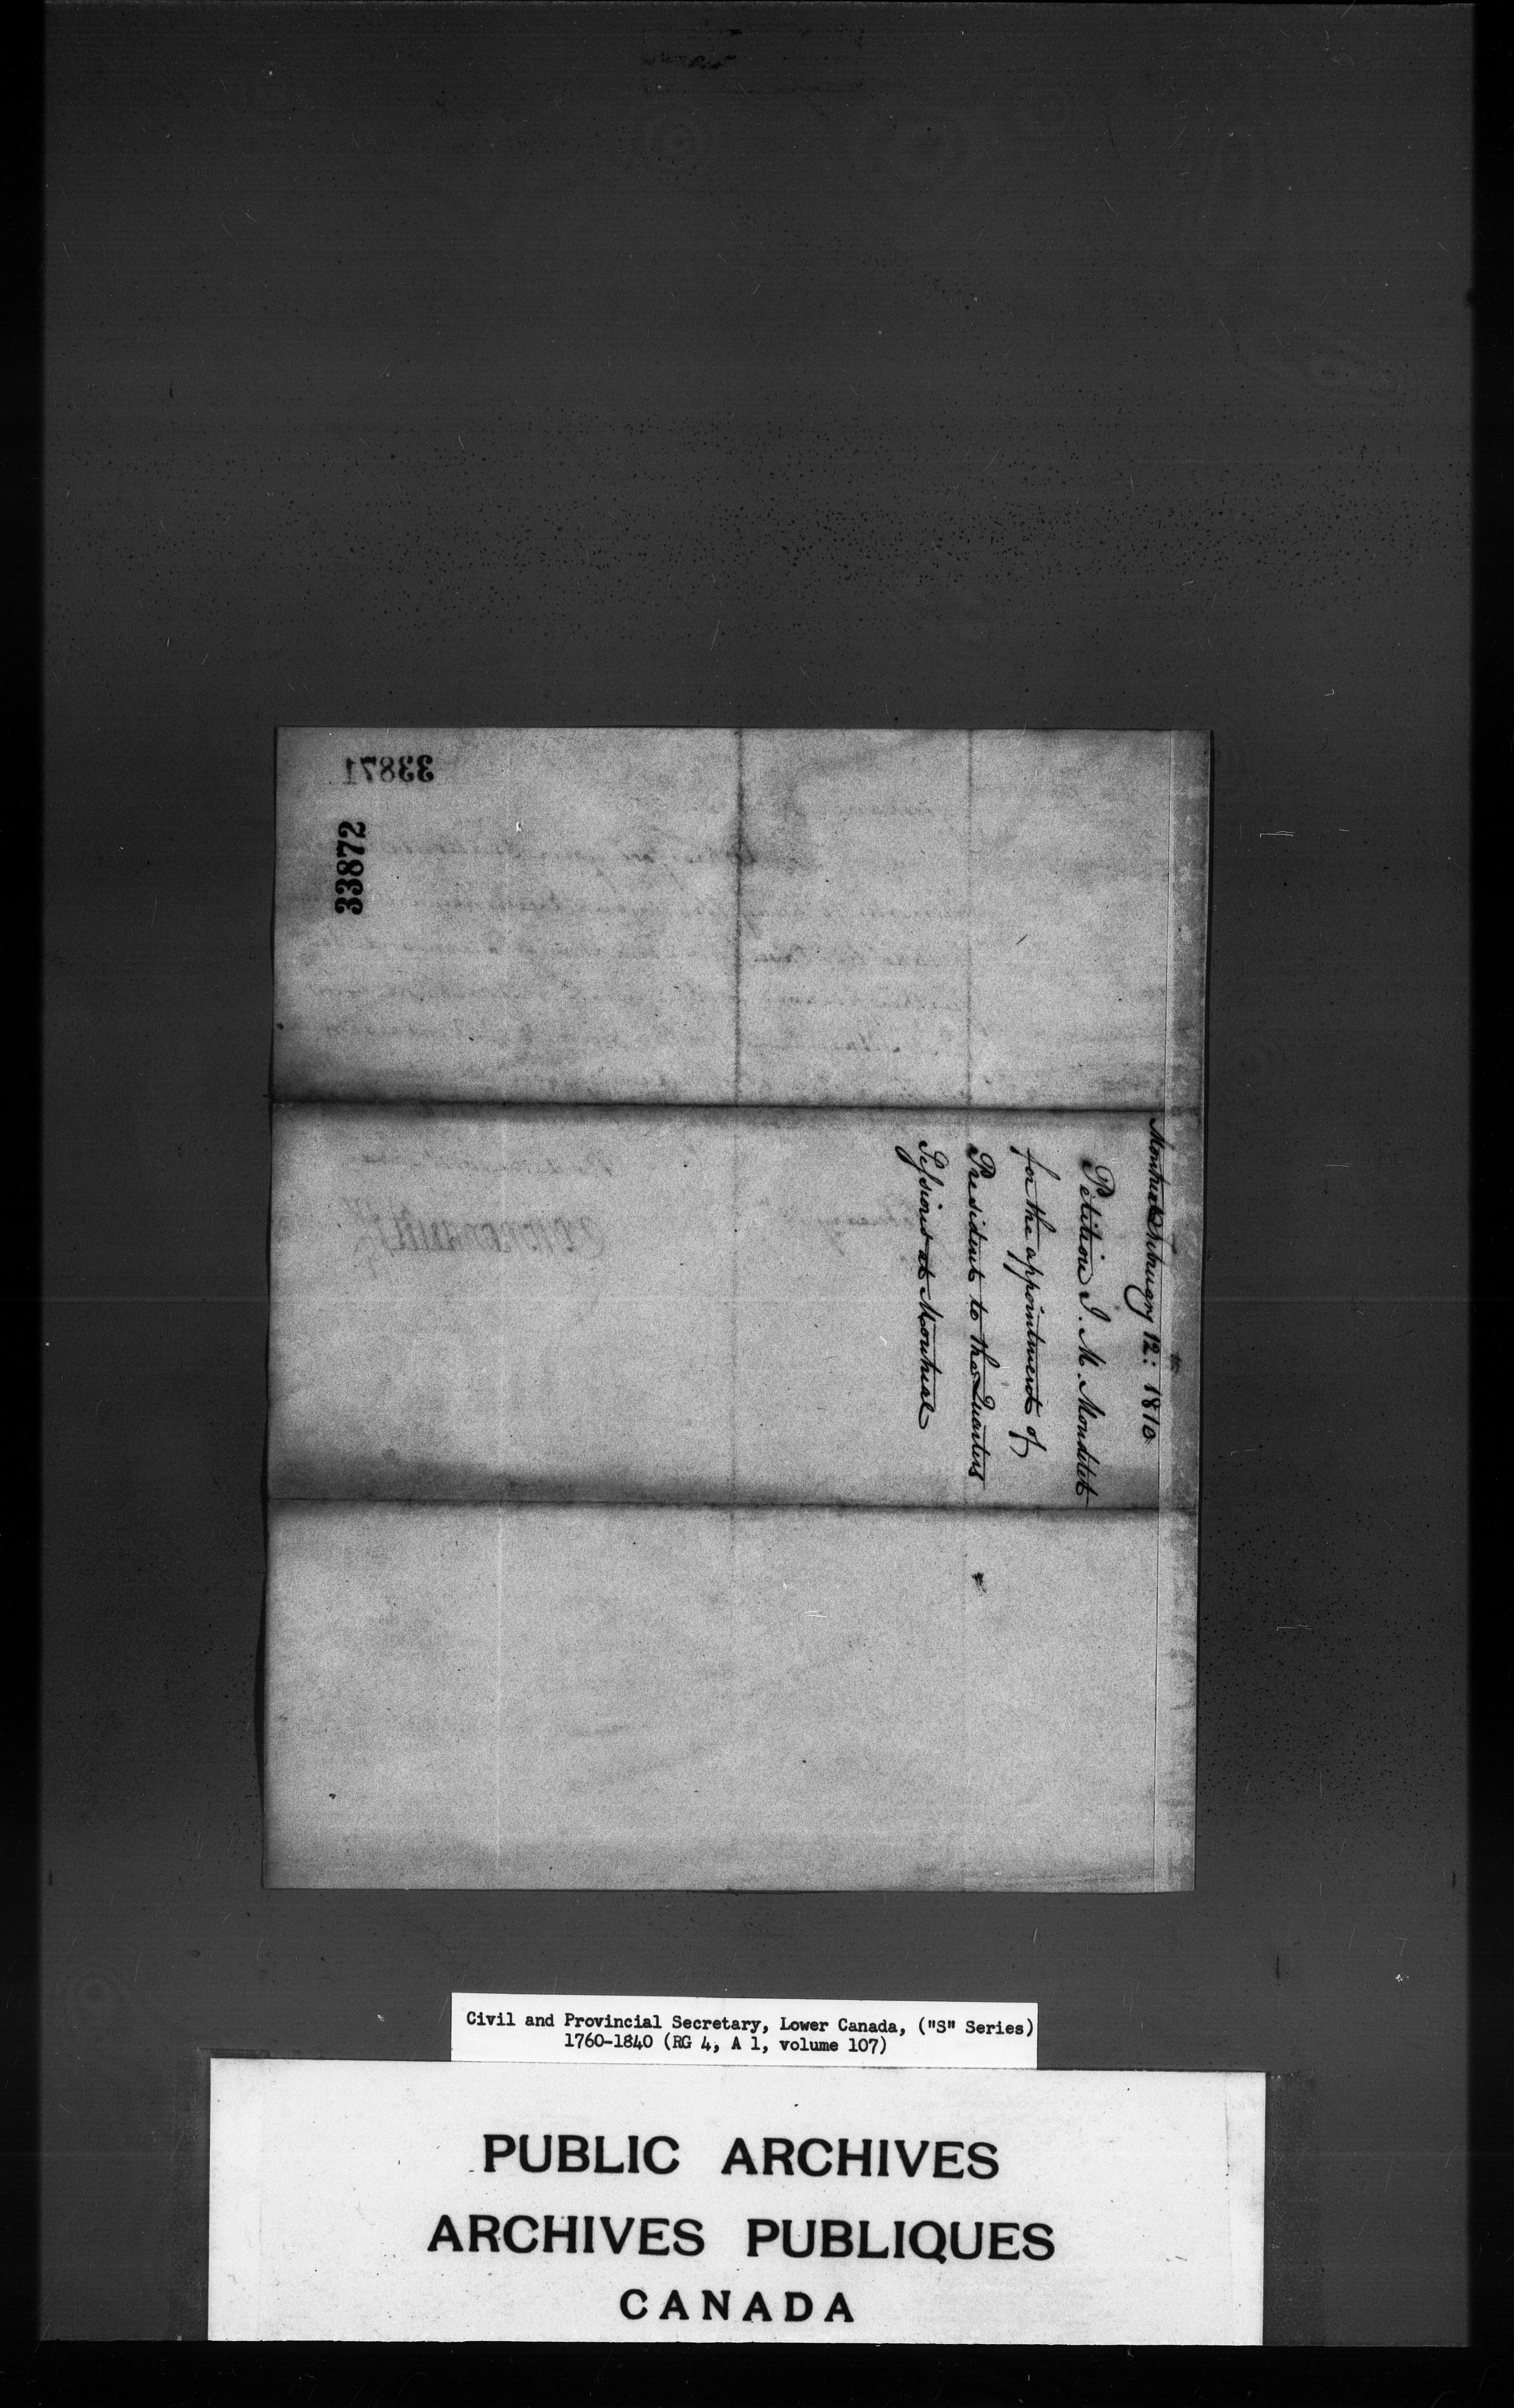 33871
33872
Montreal February 12th: 1810
Petition J. M. Mondelet
for the appointment of
President to the Quarters
Sessions at Montreal
Civil and Provincial Secretary, Lower Canada, ("S" Series)
1760-1840 (RG 4, A 1, volume 107)
PUBLIC ARCHIVES
ARCHIVES PUBLIQUES
CANADA